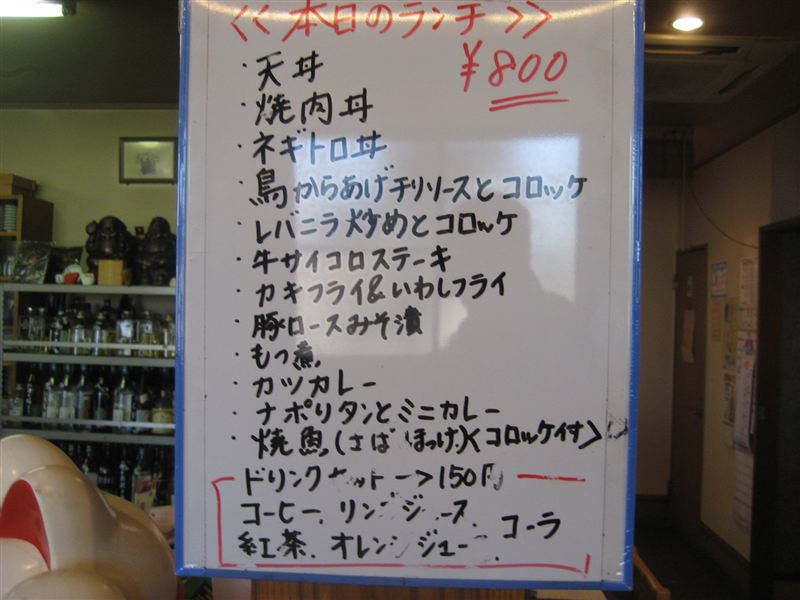 <<本日のランチ>>
¥800
・天丼
・焼肉丼
・ネギトロ丼
・鳥からあげチリソースとコロッケ
・レバニラ炒めとコロッケ
・牛サイコロステーキ
・カキフライ&いわしフライ
・豚ロースみそ漬
・もつ煮
・カツカレー
・ナポリタンとミニカレー
・焼魚(さば ほっけ)<コロッケ付>
ドリンク ット→150円
コーヒー、リンゴジュース、コーラ
紅茶、オレンジジュース